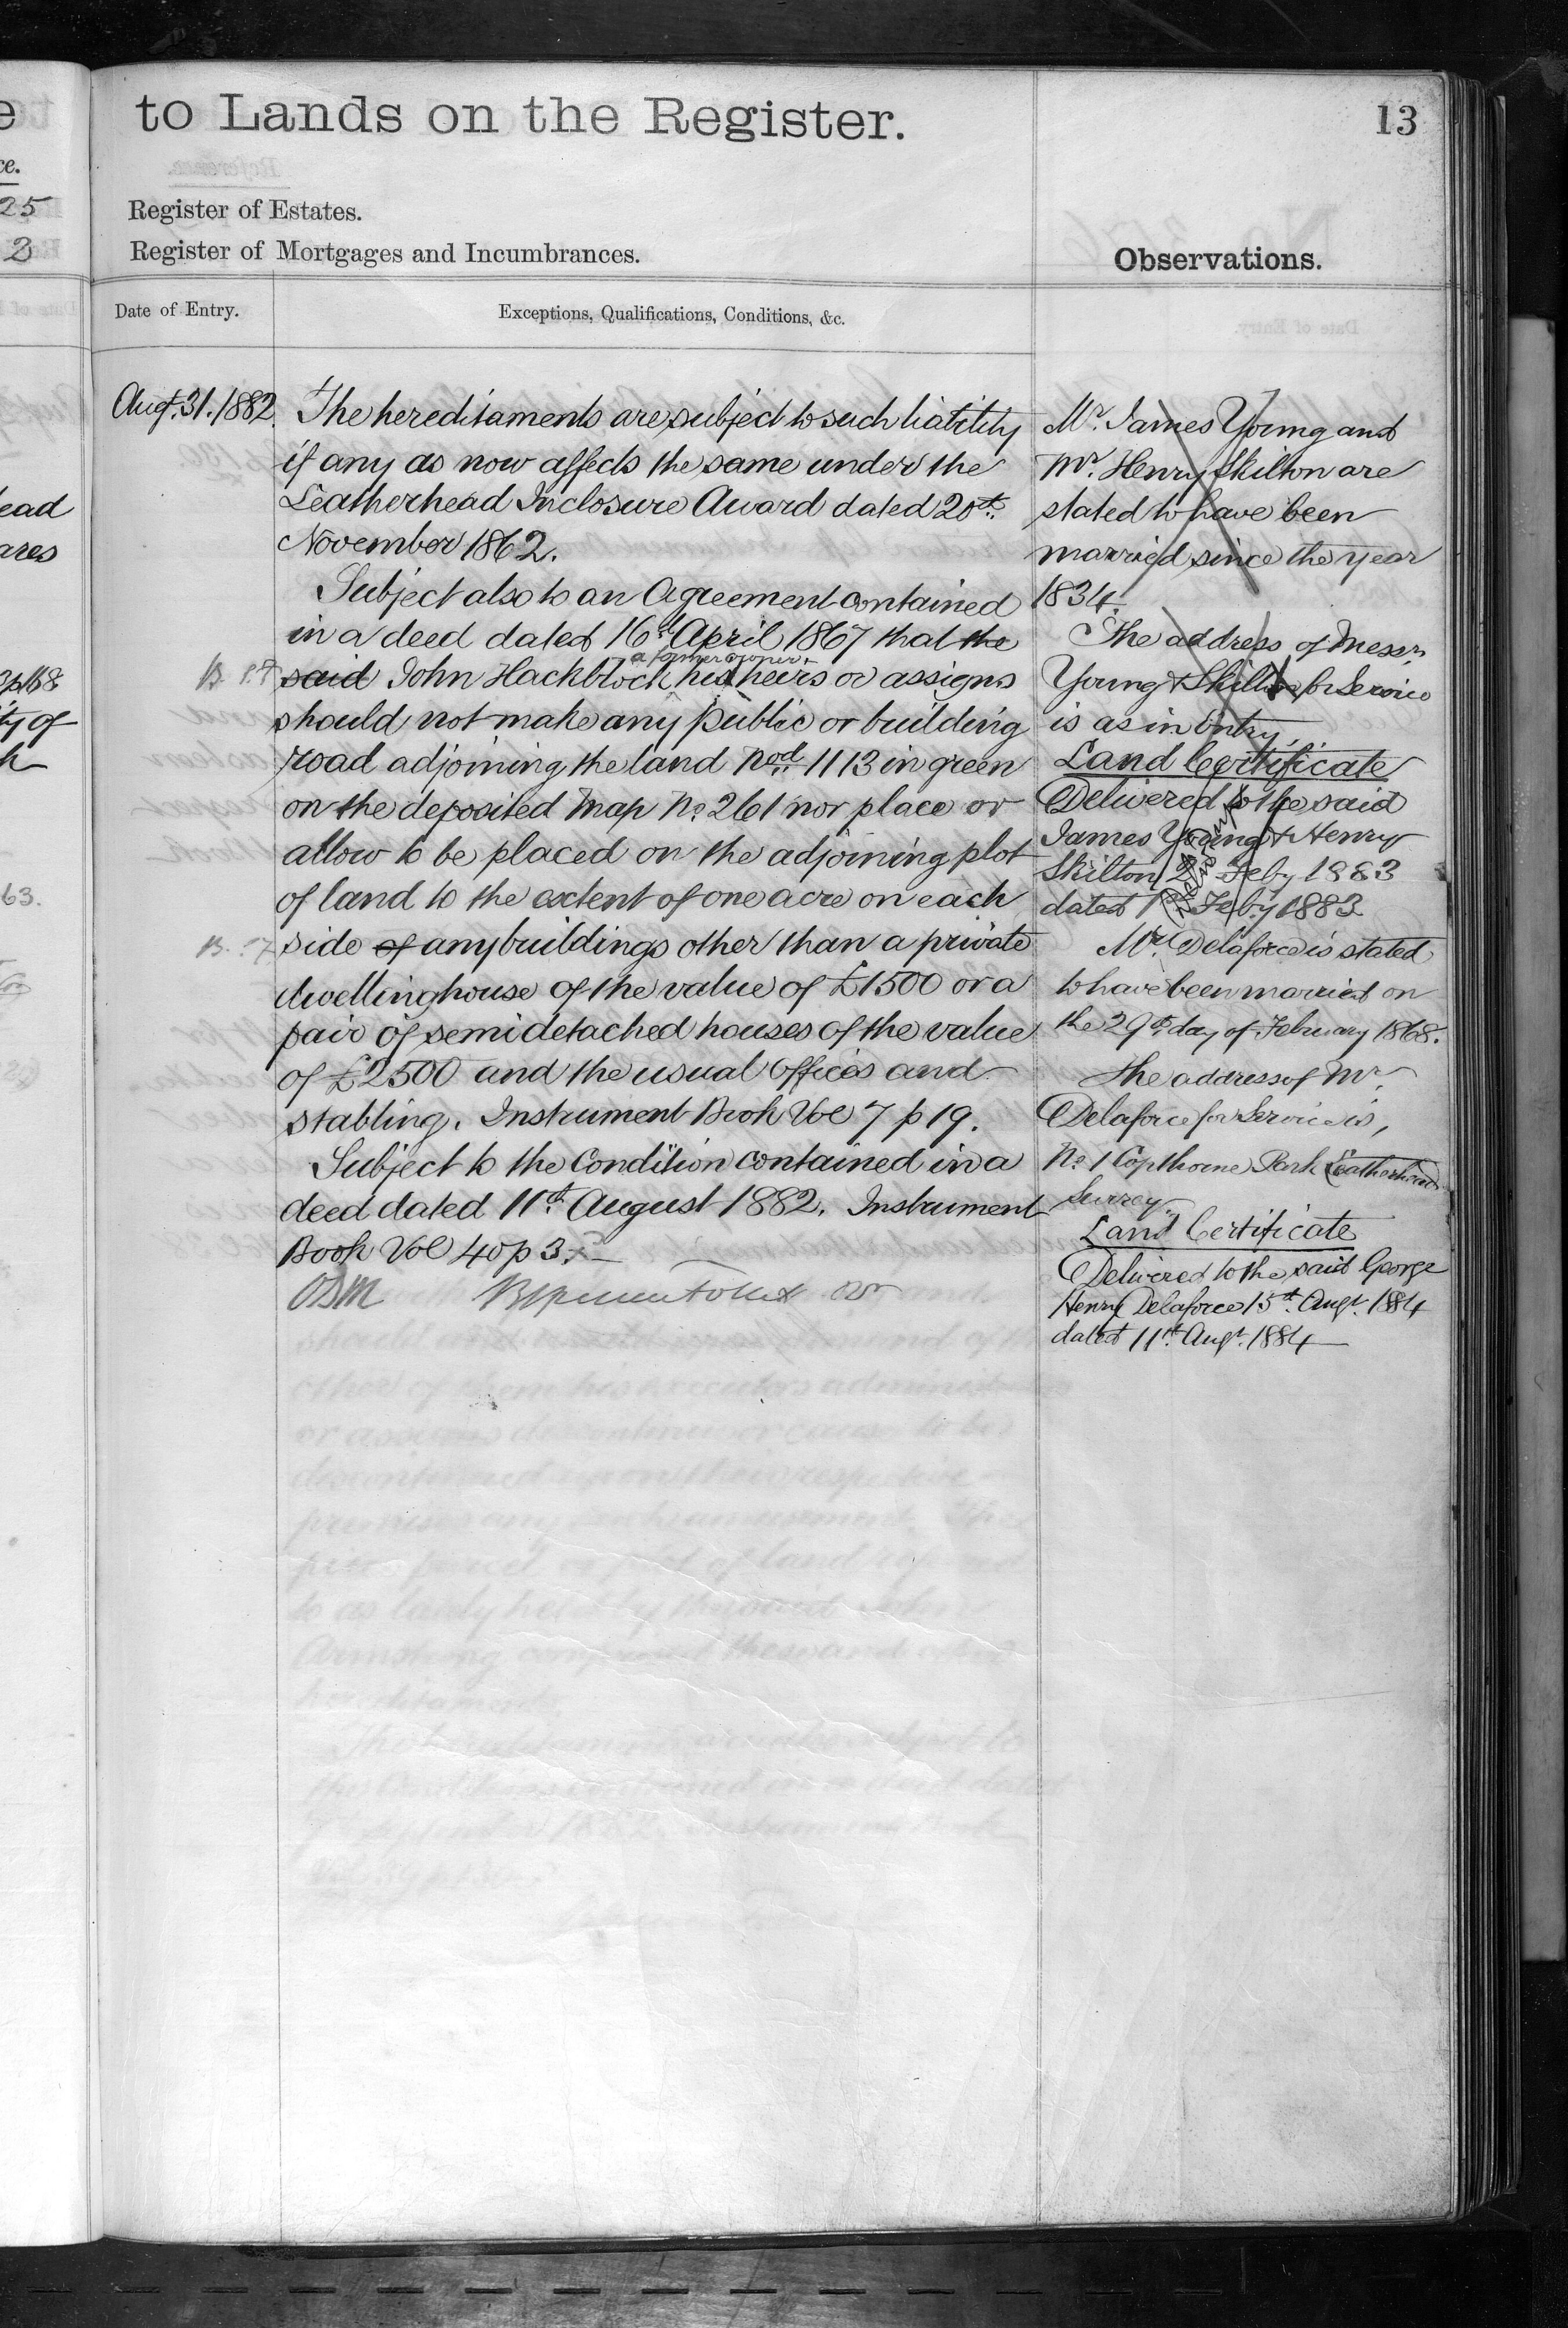 to Lands on the Register.
13
Register of Estates.
Register of Mortgages and Incumbrances.
Observations.
Date of Entry.
Exceptions, Qualifications, Conditions, &c.
Augt. 31. 1882.
The hereditaments are subject to such liability
if any as now affects the same under the
Leatherhead Inclosure Award dated 20th.
November 1862.
Subject also to an Agreement contained
in a deed dated 16th April 1867 that the
a former owner
said John Hackblock his heirs or assigns
should not make any public or building
road adjoining the land nod. 1113 in green
on the deposited map No. 261 nor place or
allow to be placed on the adjoining plot
of land to the extent of one acre on each
side of any buildings other than a private
dwellinghouse of the value of £1500 or a
pair of semidetached houses of the value
of £2500 and the usual offices and
stabling. Instrument Book Vol 7 p 19.
Subject to the Condition contained in a
deed dated 11th. August 1882. Instrument
Book Vol 40 p 3.
Mr. James Young and
Mr. Henry Skilton are
stated to have been
married since the year
1834.
The address of Messrs.
Young & Skilton for Service
is as in Entry.
Land Certificate
Delivered to the said
James Young & Henry
Skilton 2 Feby 1883
dated 1st Feby 1883
Mr. Delaforce is stated
to have been married on
the 29th day of February 1868.
The address of Mr.
Delaforce for Service is,
No. 1 Copthorne Park Leatherhead
Surrey.
Land Certificate
Delivered to the said George
Henry Delaforce 15th. Augt. 1884
dated 11th. Augt. 1884
25
3
ead
ares
ty of
63.